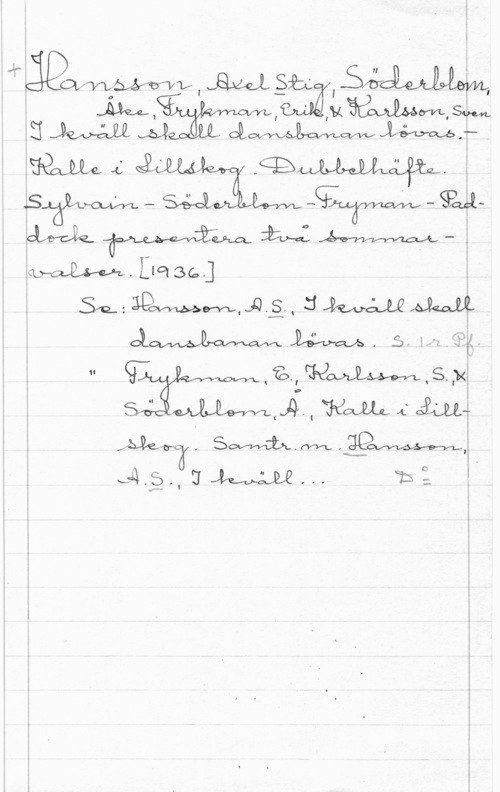 + Hansson, Axel Stig, Söderblom,
Åke, Frykman, Erik, & Karlsson, Sven
I kväll skall dansbanan lövas.-
Kalle i Lillskog. Dubbelhäfte.
Sylvain - Söderblom - Fryman - Pad-
dock presentera två sommar-
valser. [1936.]
Se: Hansson, A.S., I kväll skall
dansbanan lövas. S. l.r. Pf.
" Frykman, E., Karlsson, S., &
Söderblom, Å., Kalle i Lill-
skog. Samtr. m. Hansson,
A.S., I kväll...